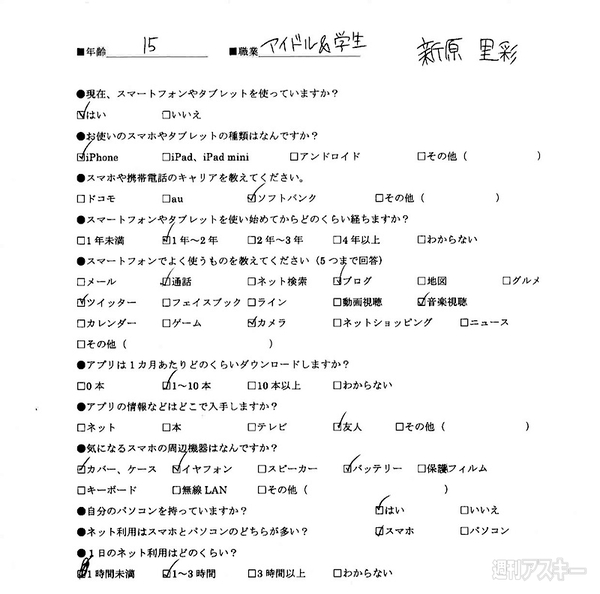 ■年齢 15 ■職業 アイドル&学生 新原 里彩
●現在、スマートフォンやタブレットを使っていますか？
☑はい □いいえ
●お使いのスマホやタブレットの種類はなんですか？
☑iPhone □iPad、iPad mini □アンドロイド □その他（ ）
●スマホや携帯電話のキャリアを教えてください。
□ドコモ □au ☑ソフトバンク □その他（ ）
●スマートフォンやタブレットを使い始めてからどのくらい経ちますか？
□1年未満 ☑1年～2年 □2年～3年 □4年以上 □わからない
●スマートフォンでよく使うものを教えてください（5つまで回答）
□メール ☑通話 □ネット検索 ☑ブログ □地図 □グルメ
☑ツイッター □フェイスブック □ライン □動画視聴 ☑音楽視聴
□カレンダー □ゲーム ☑カメラ □ネットショッピング □ニュース
□その他（ ）
●アプリは1カ月あたりどのくらいダウンロードしますか？
□0本 ☑1～10本 □10本以上 □わからない
●アプリの情報などはどこで入手しますか？
□ネット □本 □テレビ ☑友人 □その他（ ）
●気になるスマホの周辺機器はなんですか？
☑カバー、ケース ☑イヤフォン □スピーカー ☑バッテリー □保護フィルム
□キーボード □無線LAN □その他（ ）
●自分のパソコンを持っていますか？ ☑はい □いいえ
●ネット利用はスマホとパソコンのどちらが多い？ ☑スマホ □パソコン
●1日のネット利用はどのくらい？
1時間未満 ☑1～3時間 □3時間以上 □わからない
週刊アスキー